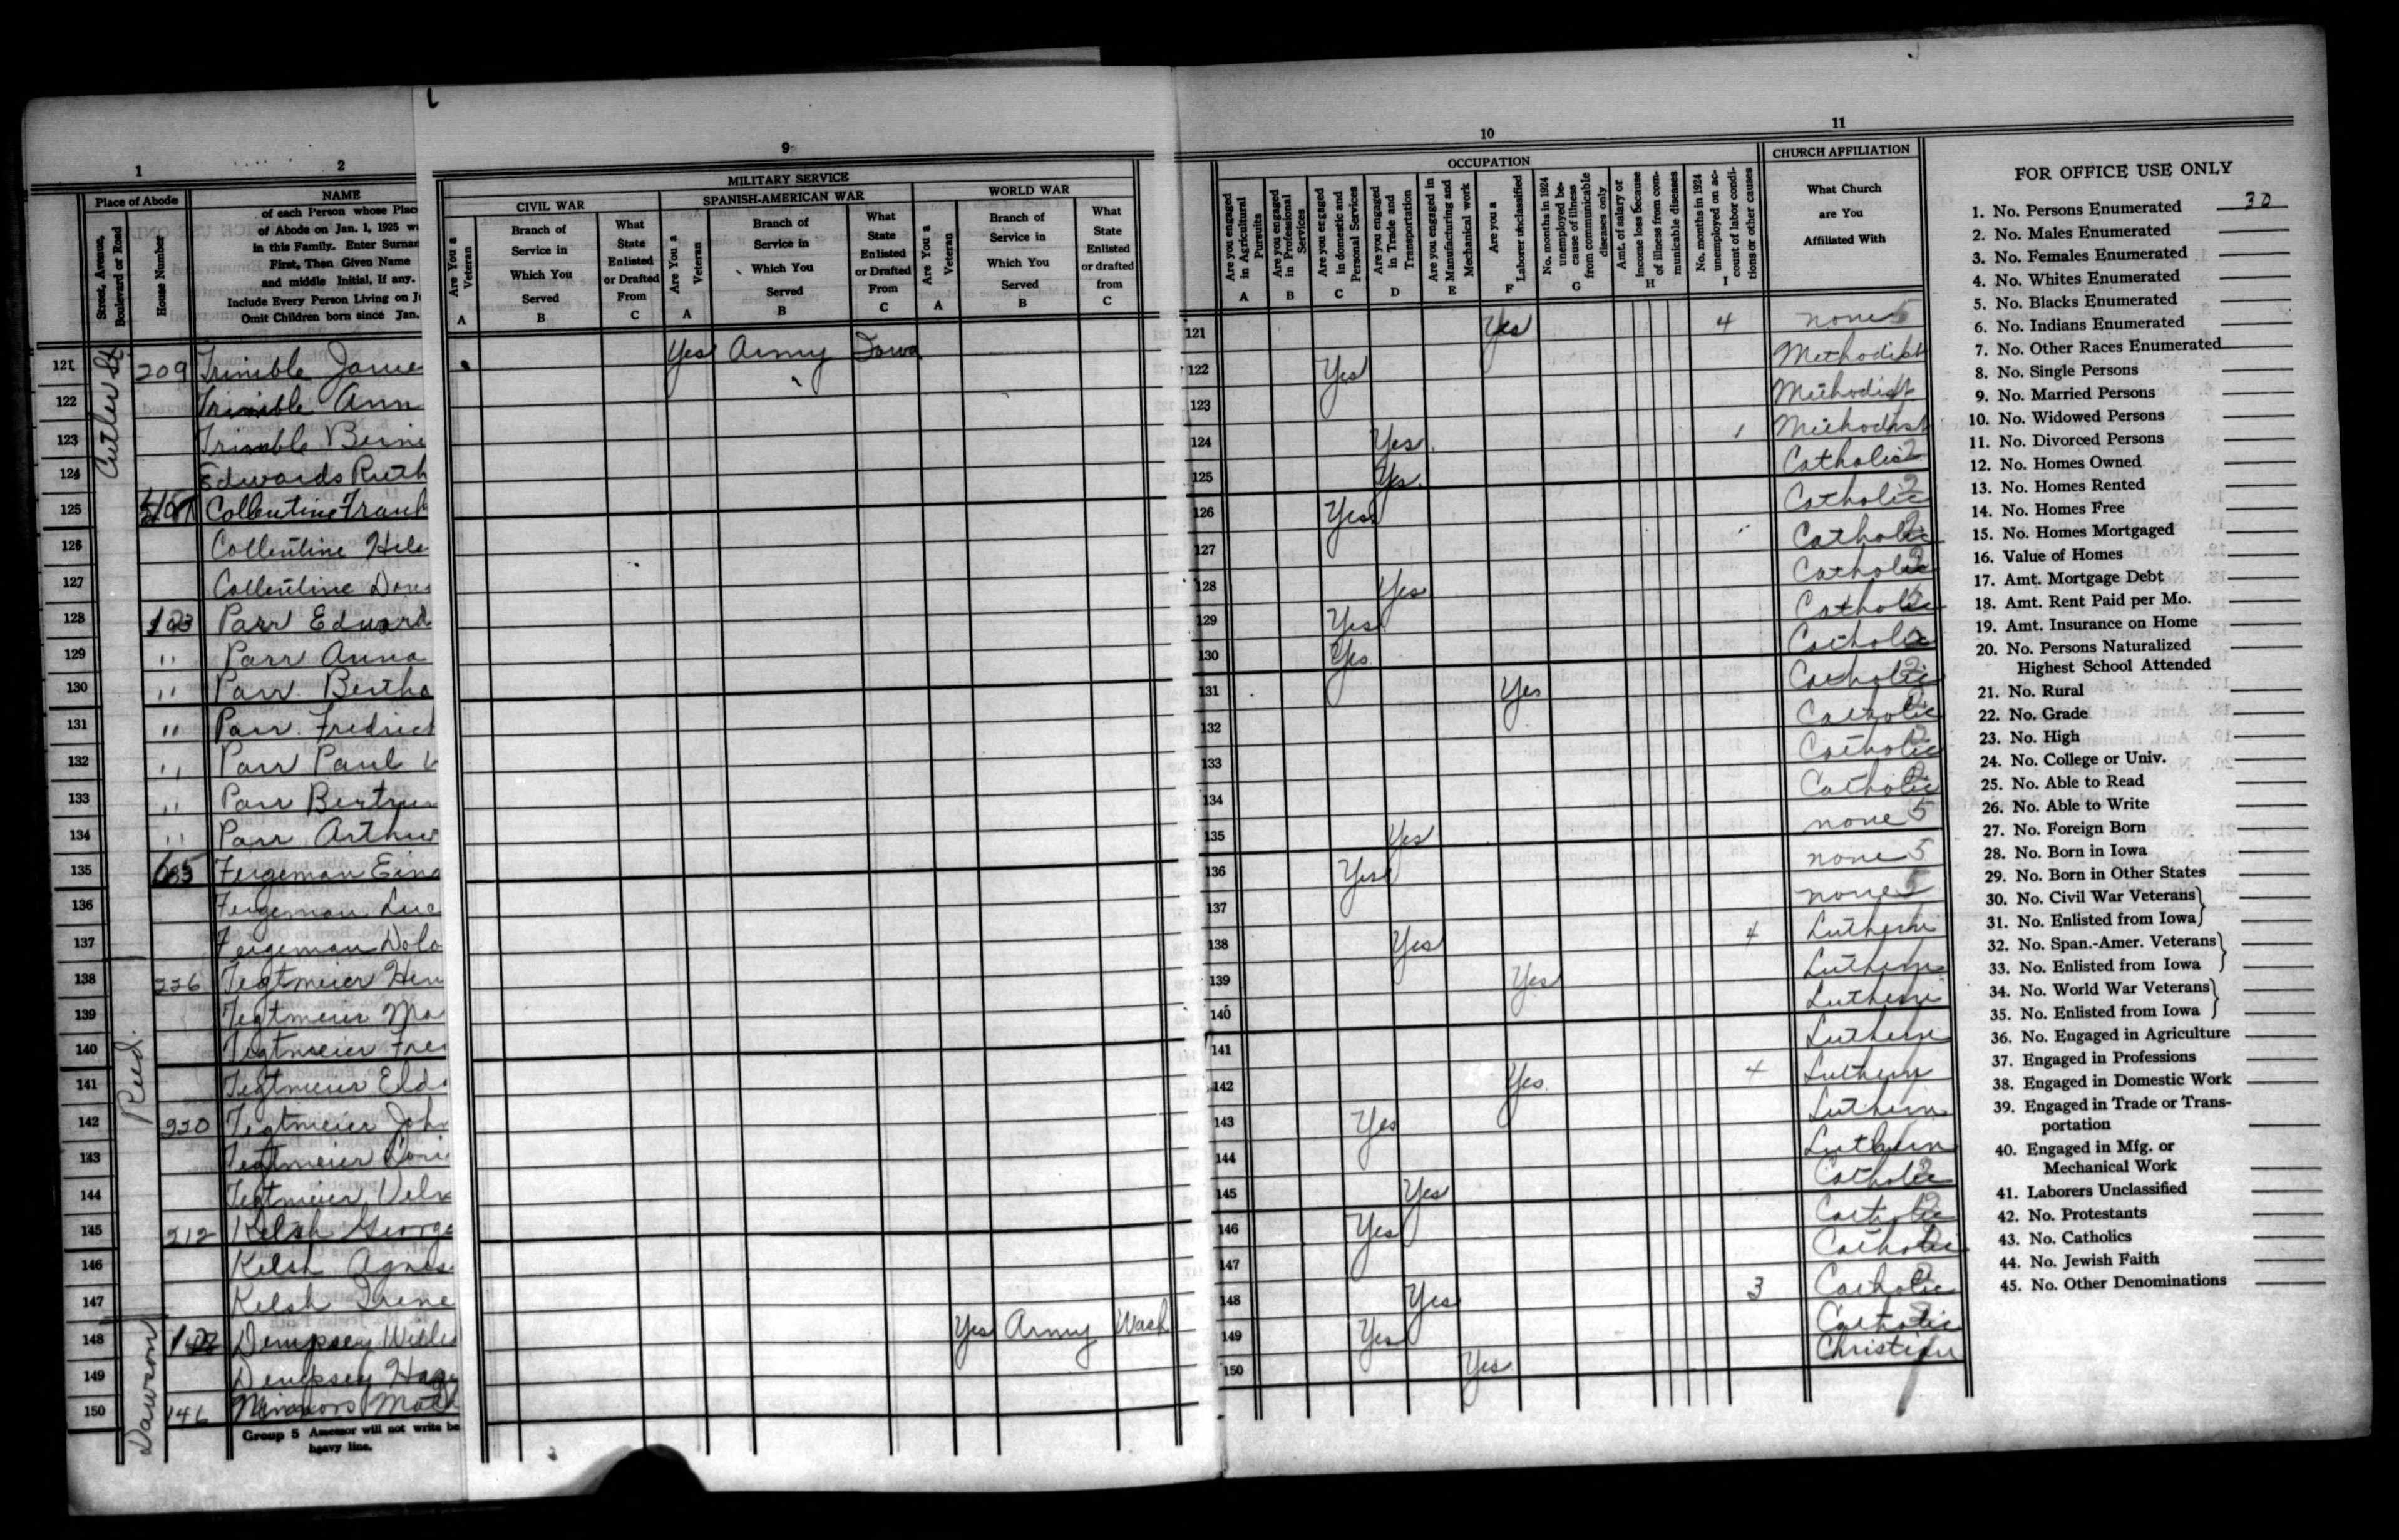 1
2
9
10
11
Place of Abode
Street, Avenue, Boulevard or Road
House Number
NAME
of each Person whose Plac
of Abode on Jan. 1, 1925 w
in this Family. Enter Surnam
First, Then Given Name
and middle Initial, If any.
Include Every Person Living on J
Omit Children born since Jan.
MILITARY SERVICE
CIVIL WAR
SPANISH-AMERICAN WAR
WORLD WAR
Are You a Veteran
A
Branch of Service in Which You Served
B
What State Enlisted or Drafted From
C
Are You a Veteran
A
Branch of Service in Which You Served
B
What State Enlisted or Drafted From
C
Are You a Veteran
A
Branch of Service in Which You Served
B
What State Enlisted or drafted from
C
OCCUPATION
Are you engaged in Agricultural Pursuits
A
Are you engaged in Professional Services
B
Are you engaged in domestic and Personal Services
C
Are you engaged in Trade and Transportation
D
Are you engaged in Manufacturing and Mechanical work
E
Are you a Laborer unclassified
F
No. months in 1924 unemployed because of illness from communicable diseases only
G
Amt. of salary or income loss because of illness from communicable diseases
H
No. months in 1924 unemployed on account of labor conditions or other causes
I
CHURCH AFFILIATION
What Church
are You
Affiliated With
121 Cutler St 209 Trimble Jame Yes Army Iowa 121 Yes 4 none 5
122 Trimble Ann 122 Yes Methodist
123 Trimble Berni 123 Methodist
124 Edwards Ruth 124 Yes 1 Methodist
125 Collentine Frank 125 Yes Catholic 2
126 Collentine Hele 126 Yes Catholic 2
127 Collentine Dor 127 Catholic 2
128 Parr Edward 128 Yes Catholic 2
129 " Parr Anna 129 Yes Catholic 2
130 " Parr Bertha 130 Yes Catholic 2
131 " Parr Fredrick 131 Yes Catholic 2
132 " Parr Paul 132 Catholic 2
133 " Parr Bertru 133 Catholic 2
134 " Parr Arthur 134 Catholic 2
135 Feigeman Eino 135 Yes none 5
136 Feigeman Luc 136 Yes none 5
137 Feigeman Dolo 137 none 5
138 Reed 226 Tegtmeier Hen 138 Yes 4 Luthern
139 Tegtmeier Ma 139 Yes Luthern
140 Tegtmeier Fre 140 Luthern
141 Tegtmeier Eld 141 Luthern
142 220 Tegtmeier Joh 142 Yes 4 Luthern
143 Tegtmeier Dori 143 Yes Luthern
144 Tegtmeier Velm 144 Luthern
145 212 Kelsh George 145 Yes Catholic 2
146 Kelsh Agnes 146 Yes Catholic 2
147 Kelsh Irene 147 Catholic 2
148 Dawson Dempsey Willi Yes Army Wash 148 Yes 3 Catholic 2
149 Dempsey Haze 149 Yes Catholic 2
150 146 150 Yes Christian
Group 5 Assessor will not write be
heavy line.
FOR OFFICE USE ONLY
1. No. Persons Enumerated 30
2. No. Males Enumerated
3. No. Females Enumerated
4. No. Whites Enumerated
5. No. Blacks Enumerated
6. No. Indians Enumerated
7. No. Other Races Enumerated
8. No. Single Persons
9. No. Married Persons
10. No. Widowed Persons
11. No. Divorced Persons
12. No. Homes Owned
13. No. Homes Rented
14. No. Homes Free
15. No. Homes Mortgaged
16. Value of Homes
17. Amt. Mortgage Debt
18. Amt. Rent Paid per Mo.
19. Amt. Insurance on Home
20. No. Persons Naturalized
Highest School Attended
21. No. Rural
22. No. Grade
23. No. High
24. No. College or Univ.
25. No. Able to Read
26. No. Able to Write
27. No. Foreign Born
28. No. Born in Iowa
29. No. Born in Other States
30. No. Civil War Veterans
31. No. Enlisted from Iowa
32. No. Span.-Amer. Veterans
33. No. Enlisted from Iowa
34. No. World War Veterans
35. No. Enlisted from Iowa
36. No. Engaged in Agriculture
37. Engaged in Professions
38. Engaged in Domestic Work
39. Engaged in Trade or Trans-
portation
40. Engaged in Mfg. or
Mechanical Work
41. Laborers Unclassified
42. No. Protestants
43. No. Catholics
44. No. Jewish Faith
45. No. Other Denominations